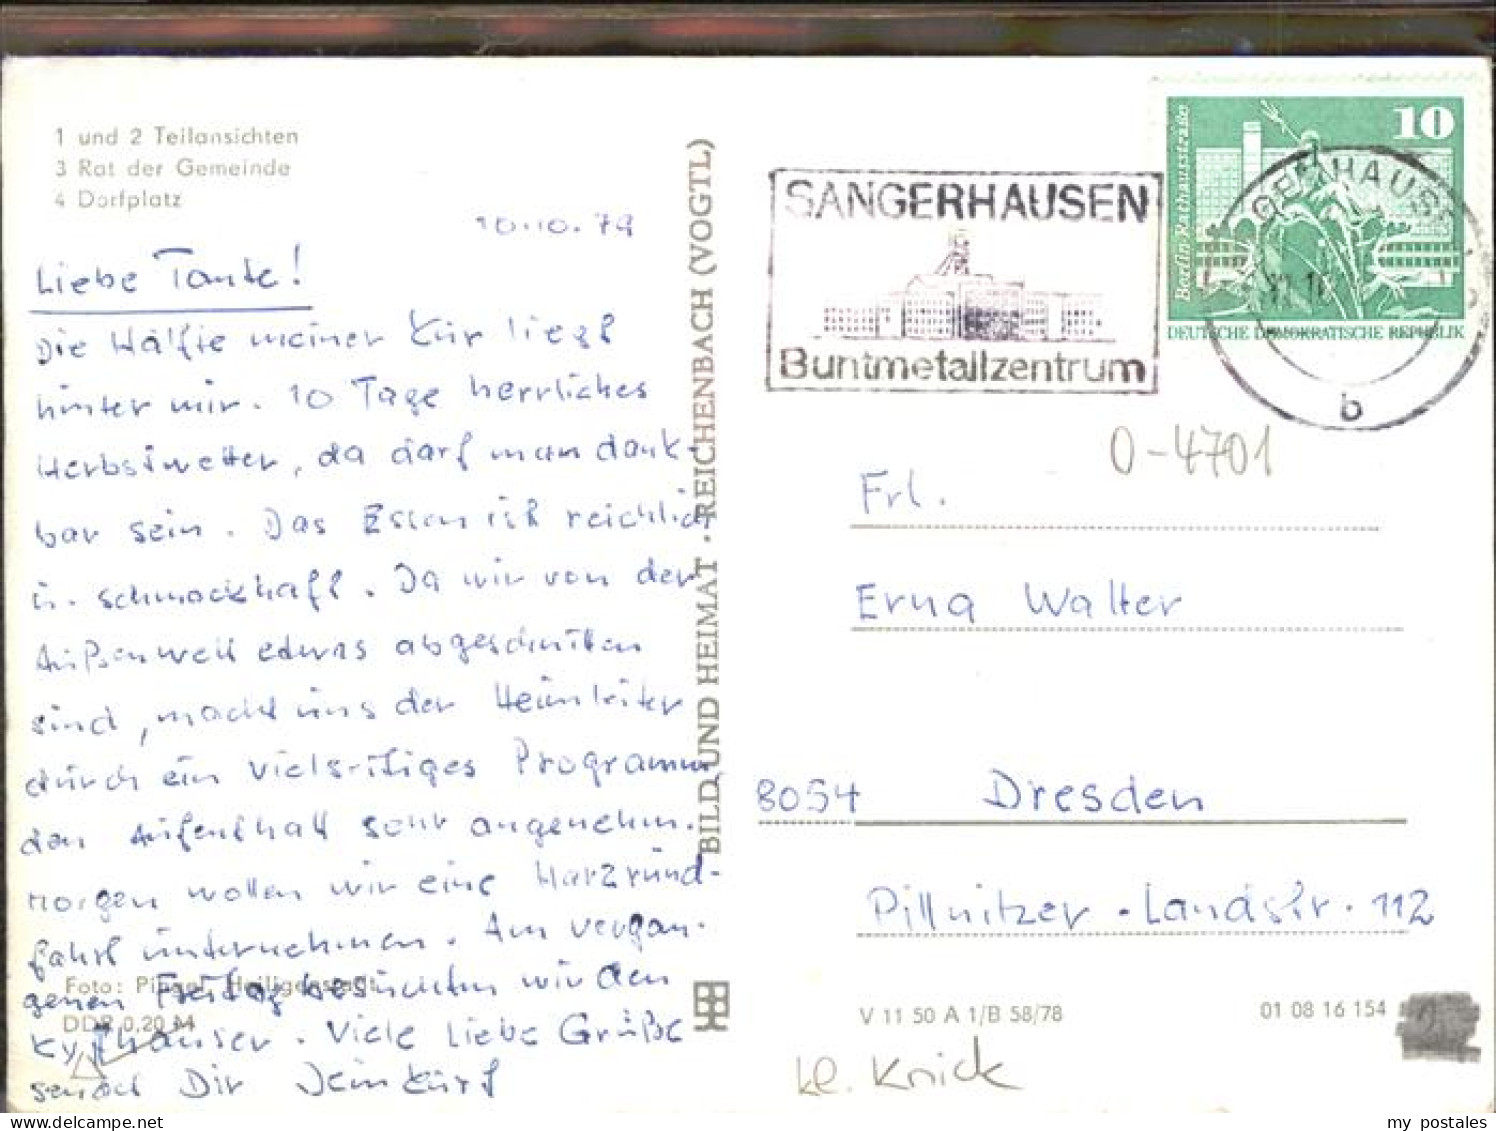 1 und 2 Teilansichten
3 Rat der Gemeinde
4 Dorfplatz
10.10.79
Liebe Tante!
Die Hälfte meiner Kur liegt
hinter mir. 10 Tage herrliches
Herbstwetter, da darf man dank-
bar sein. Das Essen ist reichlich
u. schmackhaft. Da wir von der
Außenwelt etwas abgeschnitten
sind, macht uns der Heimleiter
durch ein vielseitiges Programm
den Aufenthalt sehr angenehm.
Morgen wollen wir eine Harzrund-
fahrt unternehmen. Am vergan-
genen Freitag besuchten wir den
Kyffhäuser. Viele liebe Grüße
sendet Dir Dein Kurt
Foto: Pingel, Heiligenstadt
DDR 0,20 M
BILD UND HEIMAT · REICHENBACH (VOGTL)
SANGERHAUSEN
Buntmetallzentrum
10
Berlin-Rathausstraße
DEUTSCHE DEMOKRATISCHE REPUBLIK
SANGERHAUSEN 1
b
0-4701
Frl.
Erna Walter
8054 Dresden
Pillnitzer-Landstr. 112
V 11 50 A 1/B 58/78
01 08 16 154
kl. Knick
my postales